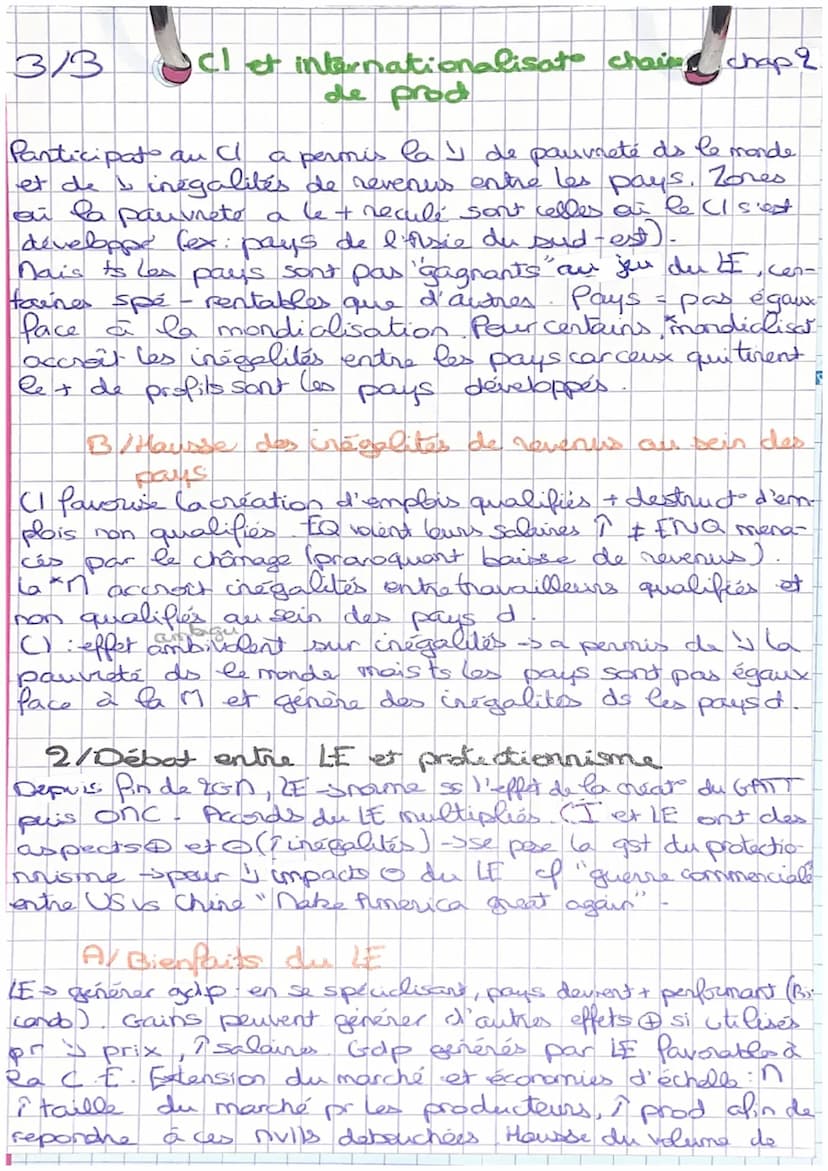 3/3 CI et internationalisat° chaine chap 2
de prod
Participat° au CI a permis la ↘ de pauvreté ds le monde
et de ↘ inégalités de revenus entre les pays. Zones
où la pauvreté a le + reculé sont celles où le CI s'est
développé (ex: pays de l'Asie du sud-est).
Mais ts les pays sont pas "gagnants" au jeu du LE, cer-
taines spé - rentables que d'autres. Pays = pas égaux
face à la mondialisation. Pour certains, mondialisat°
accroît les inégalités entre les pays car ceux qui tirent
le + de profits sont les pays développés.
B/Hausse des inégalités de revenus au sein des
pays
CI favorise la création d'emplois qualifiés + destruct° d'em-
plois non qualifiés. EQ voient leurs salaires ↑ ≠ ENQ mena-
cés par le chômage (provoquant baisse de revenus).
La *M accroît inégalités entre travailleurs qualifiés et
non qualifiés au sein des pays d.
ambigu
CI : effet ambivalent sur inégalités → a permis de ↘ la
pauvreté ds le monde mais ts les pays sont pas égaux
face à la M et génère des inégalités ds les pays d.
2/Débat entre LE et protectionnisme
Depuis fin de 2GM, LE → norme ss l'effet de la créat° du GATT
puis OMC. Accords du LE multipliés. CI et LE ont des
aspects ⊕ et ⊖ (↑ inégalités) → se pose la qst du protectio-
nnisme → pour ↘ impacts ⊖ du LE cf "guerre commerciale
entre US vs Chine "Make America great again".
A/ Bienfaits du LE
LE → générer gdp : en se spécialisant, pays devient + performant (Ri-
cardo). Gains peuvent générer d'autres effets ⊕ si utilisés
pr ↘ prix, ↑ salaires. Gdp générés par LE favorables à
la C.E. Extension du marché et économies d'échelle : M
↑ taille du marché pr les producteurs, ↑ prod afin de
repondre à ces nvlls debouchées. Hausse du volume de